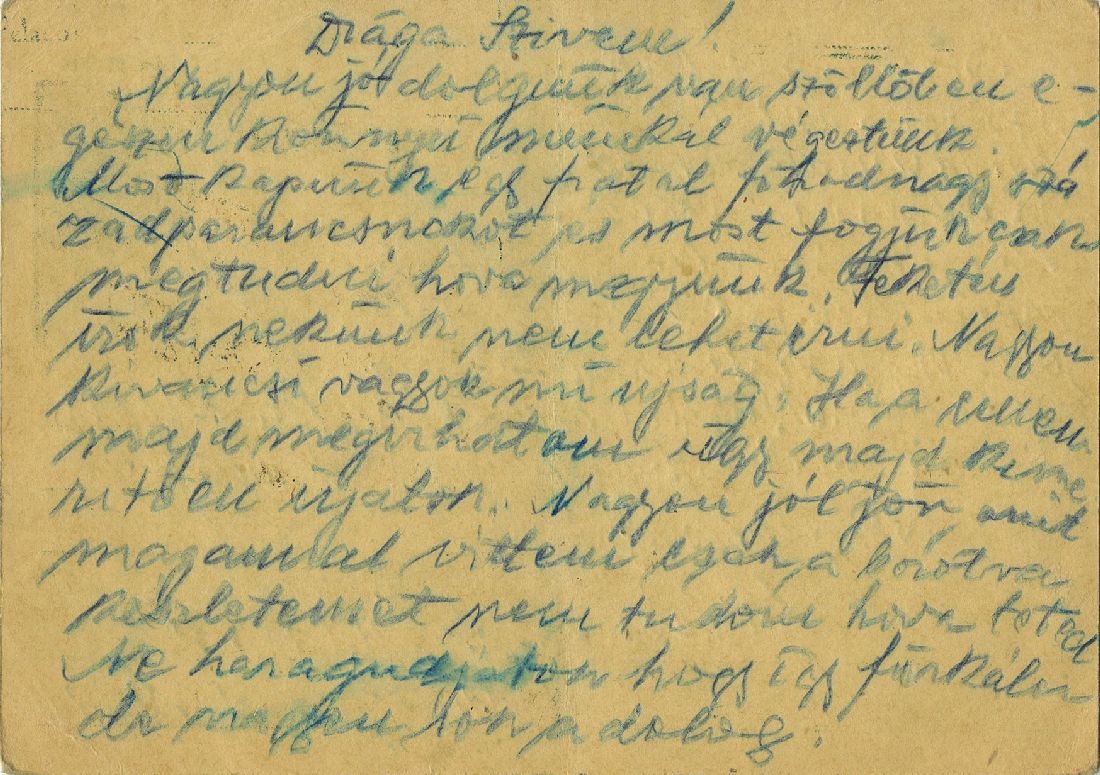 Drága Szivem!
Nagyon jó dolgunk van szöllőben e-
gészen könnyű munkát végeztünk.
Most kaptunk egy fiatal főhadnagy szá
zadparancsnokot és most fogjuk csak
megtudni hova megyünk. Feketén
irok nekünk nem lehet irni. Nagyon
kiváncsi vagyok mi ujság. Ha a cimem
majd megirhatom úgy majd kime
ritően irjatok. Nagyon jól jön amit
magammal vittem csak a borotva
készletemet nem tudom hova tetted
Ne haragudjatok hogy igy firkálok
de nagyon sok a dolog.